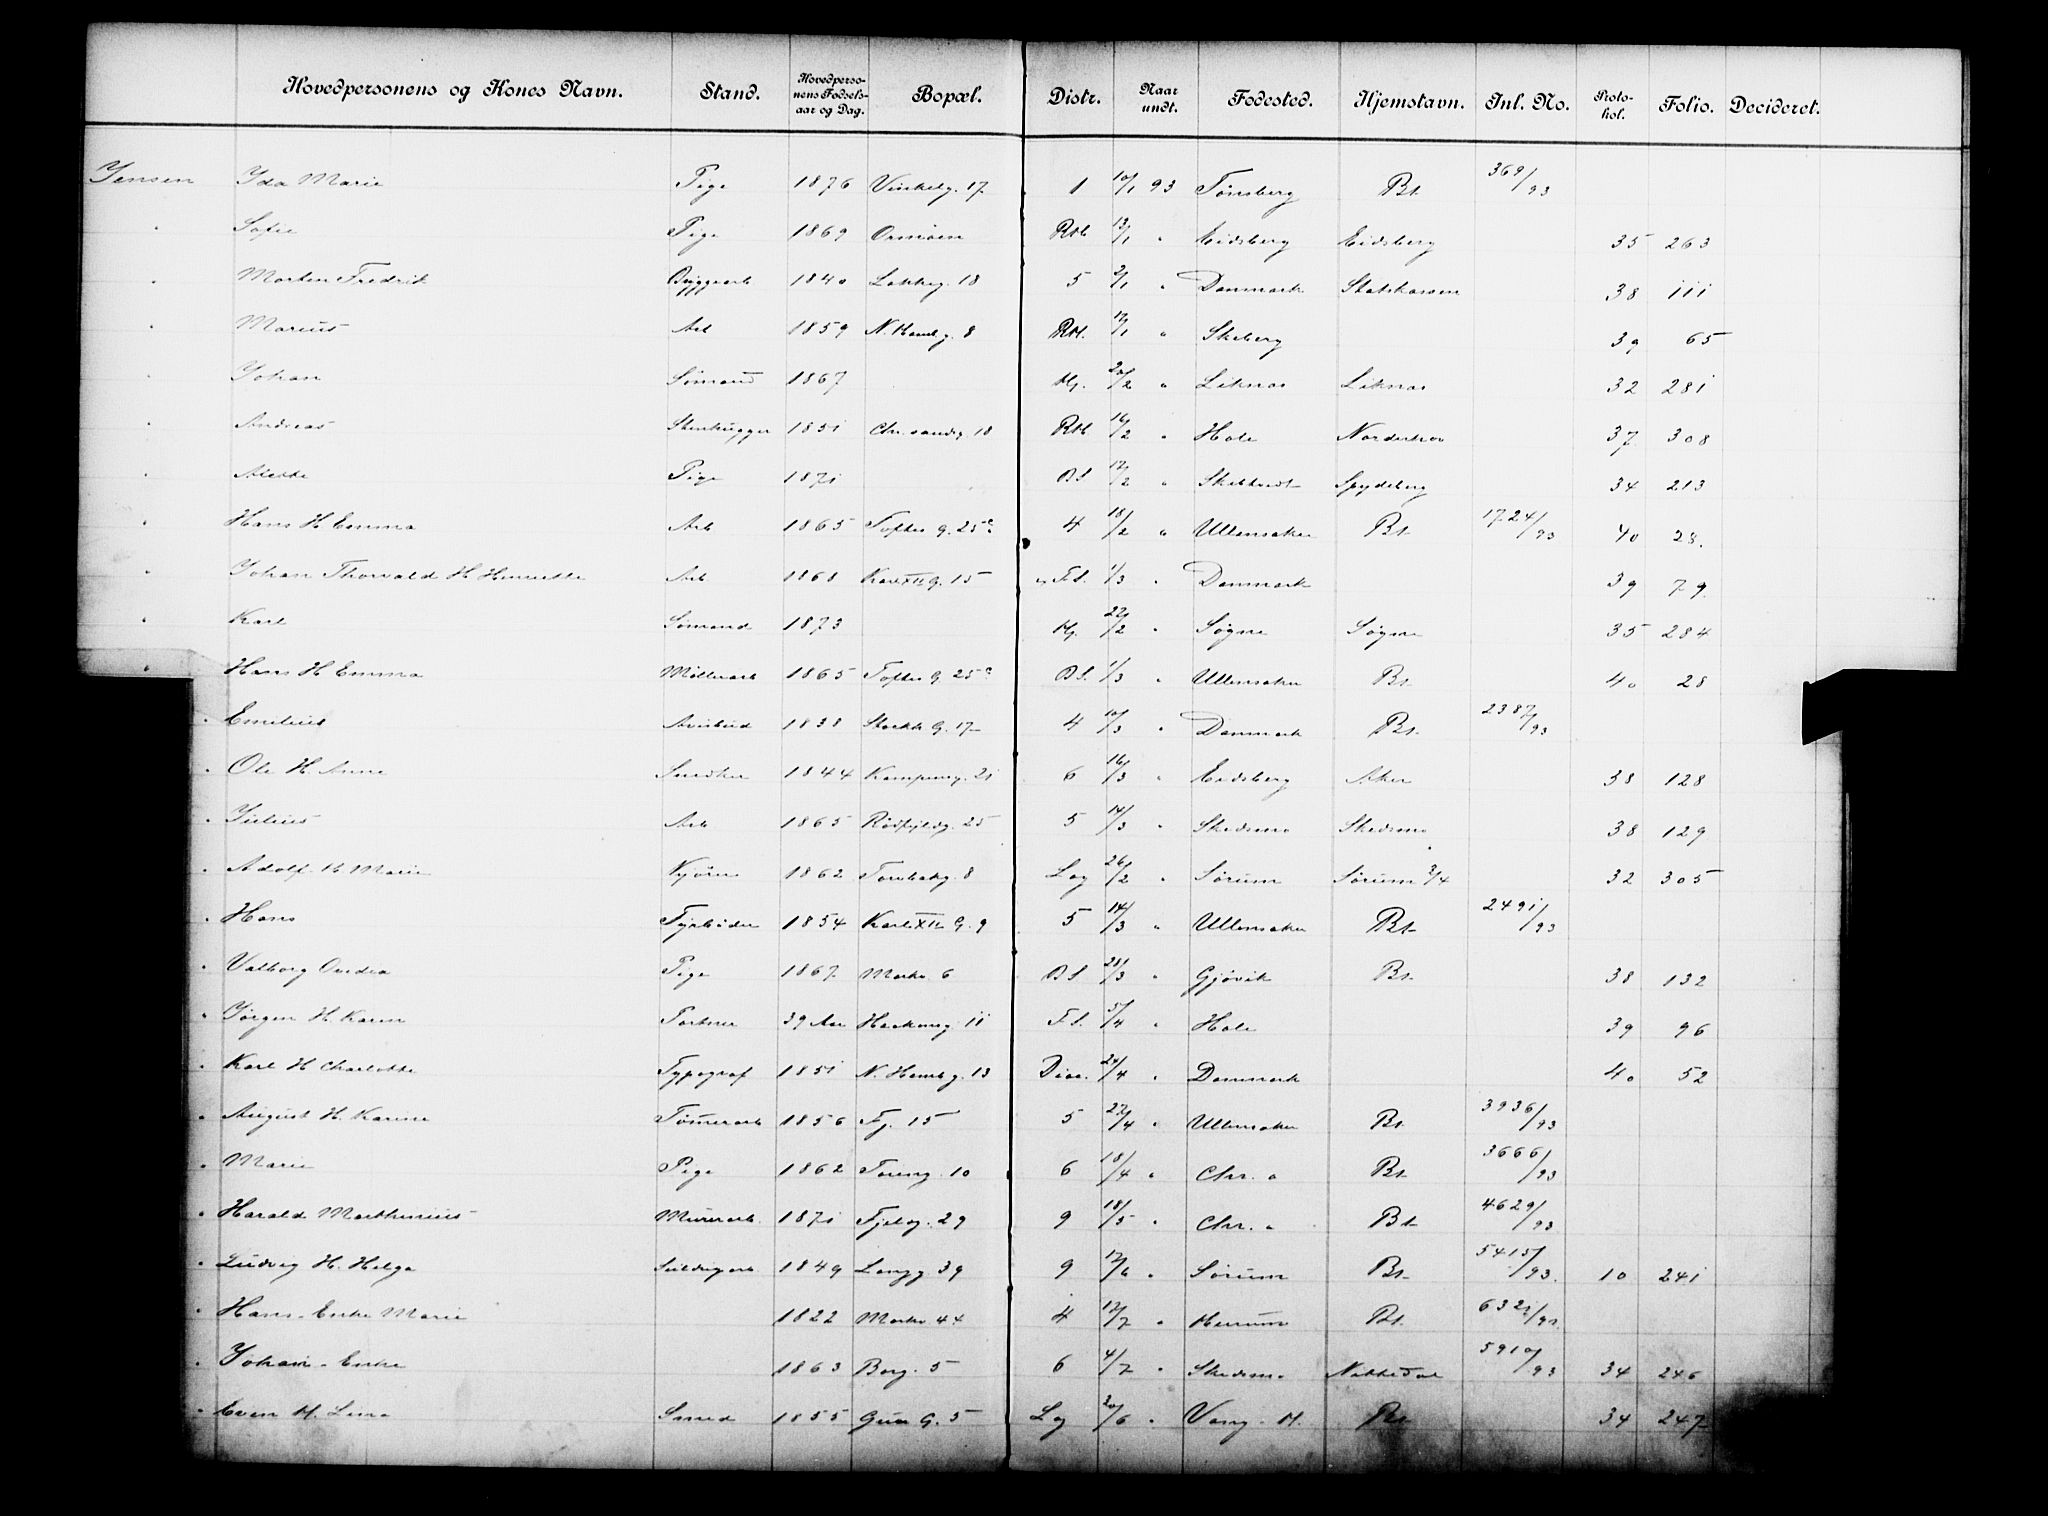 Hovedpersonens og Kones Navn. Stand. Hovedpersonens Fødselsaar og Dag. Bopæl. Distr. Naar undt. Fødested. Hjemstavn. Inl. No. Protokol. Folio. Decideret.
Jensen Ida Marie Pige 1876 Vinkelg. 17 1 10/1 93 Tønsberg Bt. 369/93
" Sofie Pige 1869 Ormøen RH. 13/1 " Eidsberg Eidsberg 35 263
" Morten Fredrik Byggearb 1840 Lakkeg. 18 5 2/1 " Danmark Statskassen 38 111
" Marius Arb 1859 N. Hambg. 8 RH. 12/1 " Skeberg 39 65
" Johan Sømand 1867 Hj. 20/2 " Liknas Liknas 32 281
" Andreas Stenhugger 1851 Chr.sandsg. 18 RH. 16/2 " Hole Norderhov 37 308
" Alette Pige 1871 BS 17/2 " Skibtvedt Spydeberg 34 213
" Hans H. Emma Arb 1865 Toftes g. 25c 4 18/2 " Ullensaker Bt. 1724/93 40 28.
" Johan Thorvald H Henriette Arb 1868 Karl XII G. 15 F.S. 1/3 " Danmark 39 79
" Karl Sømand 1873 Hj. 22/2 " Søgne Søgne 35 284
" Hans H Emma Møllerarb 1865 Toftes G. 25c BS. 1/3 " Ullensaker Bt. 40 28
" Emilius Avisbud 1838 Storkk G. 17 4 10/3 " Danmark Bt. 2387/93
" Ole H. Anne Snedker 1844 Kampeng. 21 6 16/3 " Eidsberg Aker 38 128
" Julius Arb 1865 Rødfjeldg. 25 5 14/3 " Skedsmo Skedsmo 38 129
" Adolf H. Marie 1862 Torvbakg. 8 Lag 26/2 " Sørum Sørum 3/4 32 305
" Hans Fyrbøder 1854 Karl XII G. 9 5 14/3 " Ullensaker Bt. 2491/93
" Valborg Ovidia Pige 1867 Markv. 6 BS 28/3 " Gjøvik Bt. 38 132
" Jørgen H. Karen Portner 39 Aar Hackmsg. 11 F.S. 5/4 " Hole 39 96
" Karl H Charlotte Typograf 1851 N. Hambg. 13 Diac. 24/4 " Danmark 40 52
" August H. Karine Tømerarb 1856 Fj. 15 5 27/4 " Ullensaker Bt. 3936/93
" Marie Pige 1862 Toieng. 10 6 18/4 " Chr. a Bt. 3666/93
" Harald Marthinius Murerarb. 1871 Fjeldg. 29 9 18/5 " Chr. a Bt. 4629/93
" Ludvig H. Helga 1849 Langg. 39 9 17/6 " Sørum Bt. 5415/93. 10 241
" Hans - Enke Marie 1822 Markv. 44 4 12/7 " Hurum Bt. 6321/93
" Johan - Enke 1863 Borg. 5 6 4/7 " Skedsmo Nittedal 5910/93 34 246
" Even H. Lina Smed 1855 G. 5 Lag 20/6 " Vang H. Bt 34 247